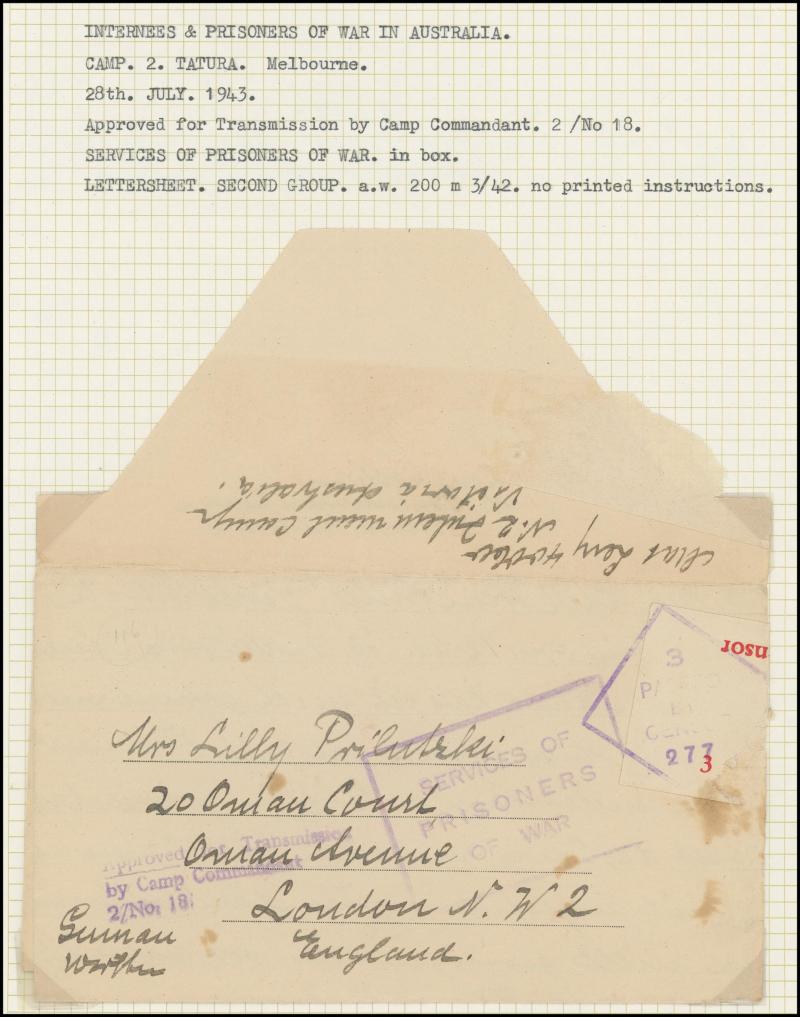 INTERNEES & PRISONERS OF WAR IN AUSTRALIA.
CAMP. 2. TATURA. Melbourne.
28th. JULY. 1943.
Approved for Transmission by Camp Commandant. 2 /No 18.
SERVICES OF PRISONERS OF WAR. in box.
LETTERSHEET. SECOND GROUP. a.w. 200 m 3/42. no printed instructions.
N.2 Internment Camp
Victoria Australia.
nsor
3
277
3
SERVICES OF
PRISONERS
OF WAR
Mrs Lilly Prilutzki
20 Oman Court
Oman Avenue
London N.W 2
England.
Approved for Transmission
by Camp Commandant
2/No. 18.
German